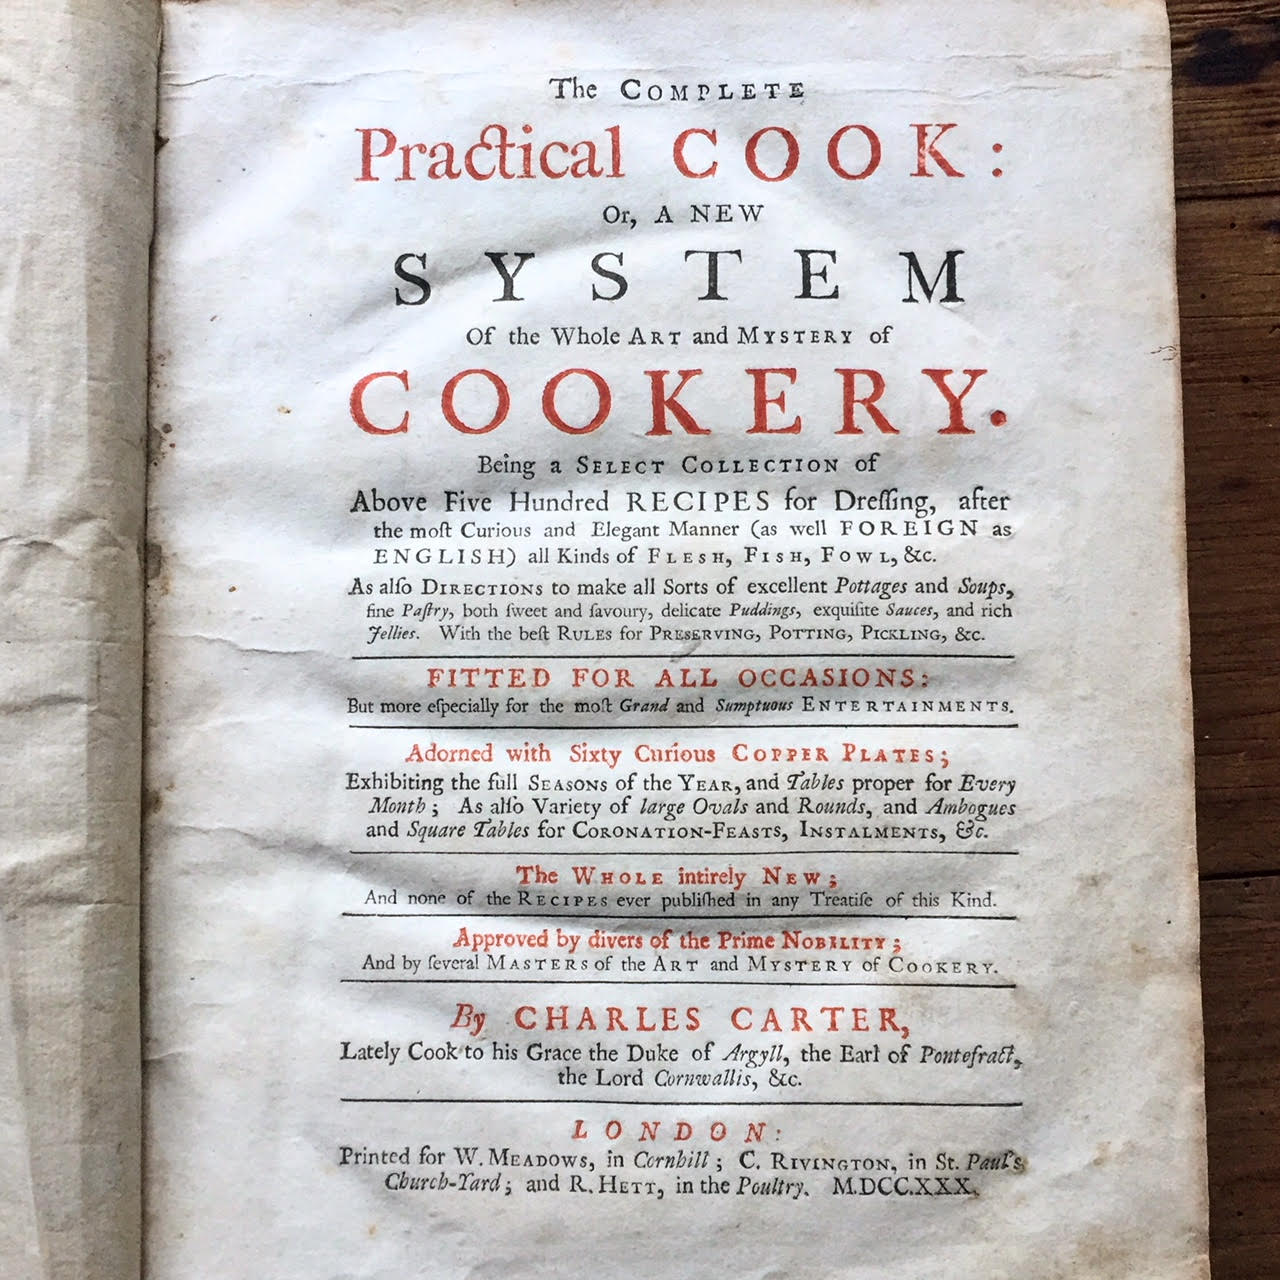 The COMPLETE
Practical COOK:
Or, A NEW
SYSTEM
Of the Whole ART and MYSTERY of
COOKERY.
Being a SELECT COLLECTION of
Above Five Hundred RECIPES for Dreſſing, after
the moſt Curious and Elegant Manner (as well FOREIGN as
ENGLISH) all Kinds of FLESH, FISH, FOWL, &c.
As alſo DIRECTIONS to make all Sorts of excellent Pottages and Soups,
fine Paſtry, both ſweet and ſavoury, delicate Puddings, exquiſite Sauces, and rich
Jellies. With the beſt RULES for PRESERVING, POTTING, PICKLING, &c.
FITTED FOR ALL OCCASIONS:
But more eſpecially for the moſt Grand and Sumptuous ENTERTAINMENTS.
Adorned with Sixty Curious COPPER PLATES;
Exhibiting the full SEASONS of the YEAR, and Tables proper for Every
Month; As alſo Variety of large Ovals and Rounds, and Ambogues
and Square Tables for CORONATION-FEASTS, INSTALMENTS, &c.
The WHOLE intirely NEW;
And none of the RECIPES ever publiſhed in any Treatiſe of this Kind.
Approved by divers of the Prime NOBILITY;
And by ſeveral MASTERS of the ART and MYSTERY of COOKERY.
By CHARLES CARTER,
Lately Cook to his Grace the Duke of Argyll, the Earl of Pontefract,
the Lord Cornwallis, &c.
LONDON:
Printed for W. MEADOWS, in Cornhill; C. RIVINGTON, in St. Paul's
Church-Yard; and R. HETT, in the Poultry. M.DCC.XXX.